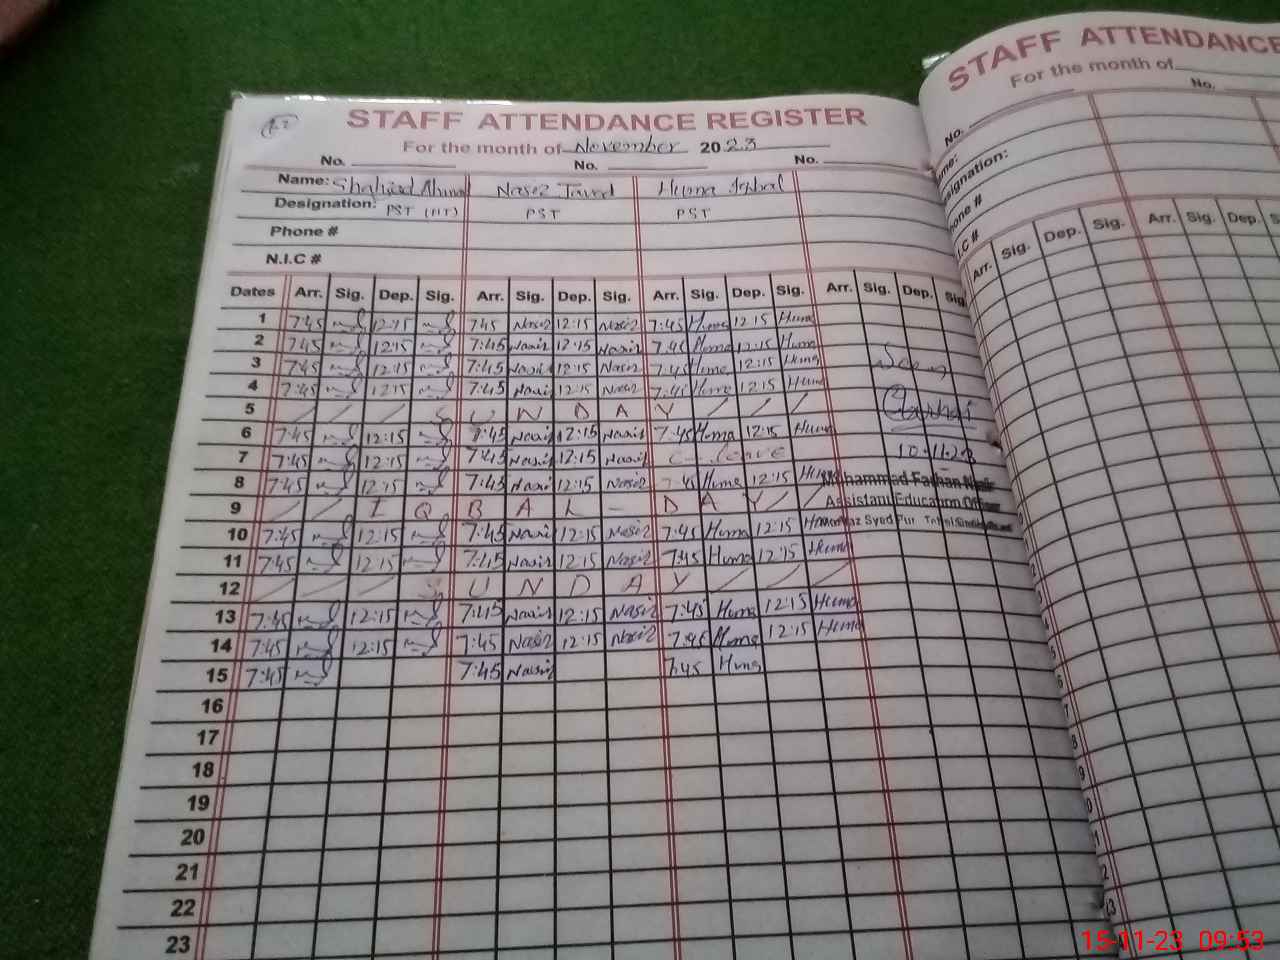 STAFF ATTENDANCE REGISTER
For the month of November 2023
No. No. No.
Name: Shahid Ahmad Nasir Javed Huma Iqbal
Designation: PST PST PST
Phone #
N.I.C #
Dates Arr. Sig. Dep. Sig. Arr. Sig. Dep. Sig. Arr. Sig. Dep. Sig. Arr. Sig. Dep. Sig.
1 7:45 12:15 7:45 Nasir 12:15 Nasir 7:45 Huma 12:15 Huma
2 7:45 12:15 7:45 Nasir 12:15 Nasir 7:45 Huma 12:15 Huma
3 7:45 12:15 7:45 Nasir 12:15 Nasir 7:45 Huma 12:15 Huma
4 7:45 12:15 7:45 Nasir 12:15 Nasir 7:45 Huma 12:15 Huma
5 / / / S U N D A Y / / /
6 7:45 12:15 7:45 Nasir 12:15 Nasir 7:45 Huma 12:15 Huma
7 7:45 12:15 7:45 Nasir 12:15 Nasir C. Leave
8 7:45 12:15 7:45 Nasir 12:15 Nasir 7:45 Huma 12:15 Huma
9 / / I Q B A L - D A Y /
10 7:45 12:15 7:45 Nasir 12:15 Nasir 7:45 Huma 12:15 Huma
11 7:45 12:15 7:45 Nasir 12:15 Nasir 7:45 Huma 12:15 Huma
12 / / / S U N D A Y / / /
13 7:45 12:15 7:45 Nasir 12:15 Nasir 7:45 Huma 12:15 Huma
14 7:45 12:15 7:45 Nasir 12:15 Nasir 7:45 Huma 12:15 Huma
15 7:45 7:45 Nasir 7:45 Huma
16
17
18
19
20
21
22
23
Seen
10.11.23
Mohammad Farhan
Assistant Education Officer
Markaz Syed Pur
STAFF ATTENDANCE
For the month of
No. No.
Designation:
Arr. Sig. Dep. Sig. Arr. Sig. Dep.
15-11-23 09:53